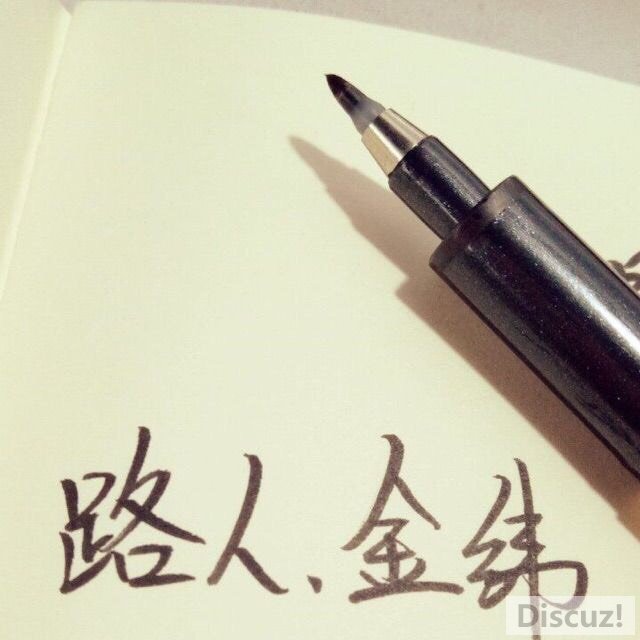 路人、金纬
Discuz!